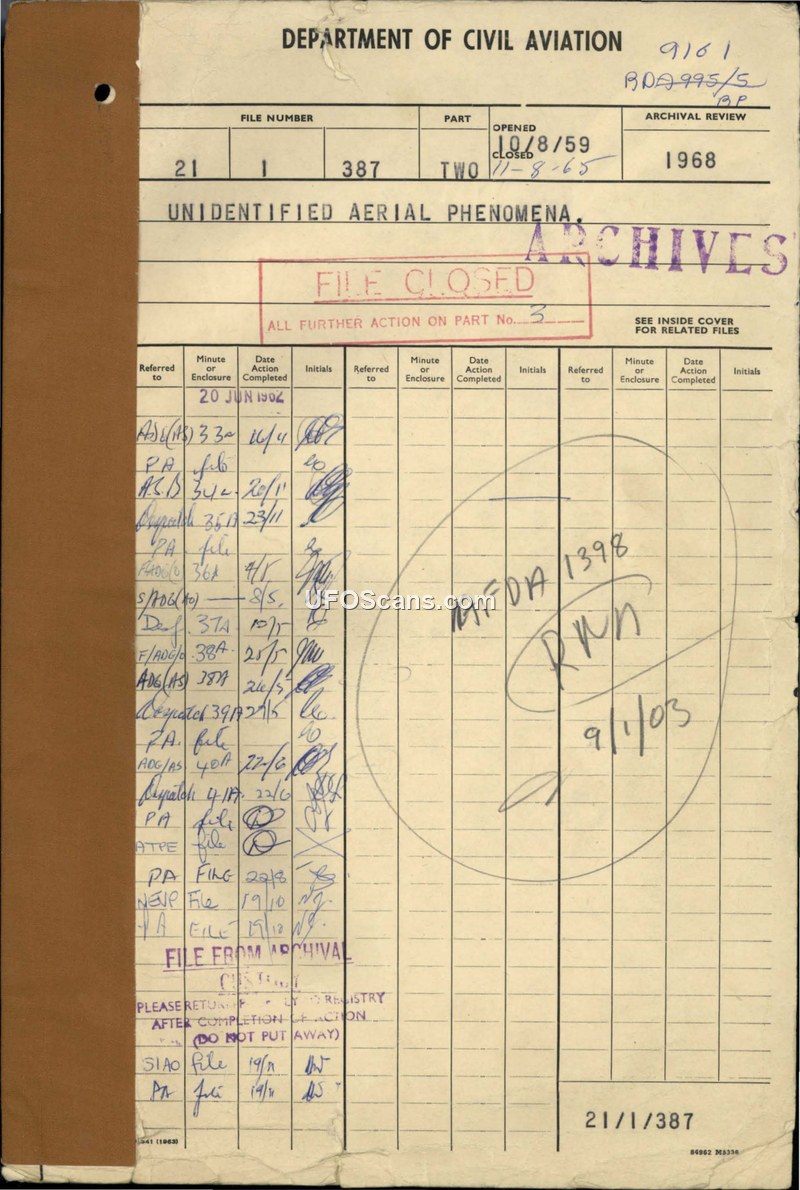 DEPARTMENT OF CIVIL AVIATION
9161
BDA995/5
BP
FILE NUMBER
PART
OPENED
ARCHIVAL REVIEW
21 1 387
TWO
10/8/59
CLOSED
11-8-65
1968
UNIDENTIFIED AERIAL PHENOMENA.
ARCHIVES
FILE CLOSED
ALL FURTHER ACTION ON PART No. 3
SEE INSIDE COVER
FOR RELATED FILES
Referred to Minute or Enclosure Date Action Completed Initials Referred to Minute or Enclosure Date Action Completed Initials Referred to Minute or Enclosure Date Action Completed Initials
20 JUN 1962
ADG(AS) 33a 16/11
PA file
34a 20/11
Despatch 35A 23/11
PA file
36A 4/5
S/ADG(AO) 8/5.
37A 10/5
F/ADG/O 38A 25/5
ADG(AS) 38A 26/5
Despatch 39A 29/5
PA. file
ADG/AS 40A 22/6
Despatch 41A. 22/6
PA file
ATPE file
PA FILE 22/8
File 19/10
PA FILE 19/10
FILE FROM ARCHIVAL
CUSTODY
PLEASE RETURN REGISTRY
AFTER COMPLETION OF ACTION
(DO NOT PUT AWAY)
SIAO file 19/11
PA file 19/11
1398
9/1/03
UFOScans.com
21/1/387
84862